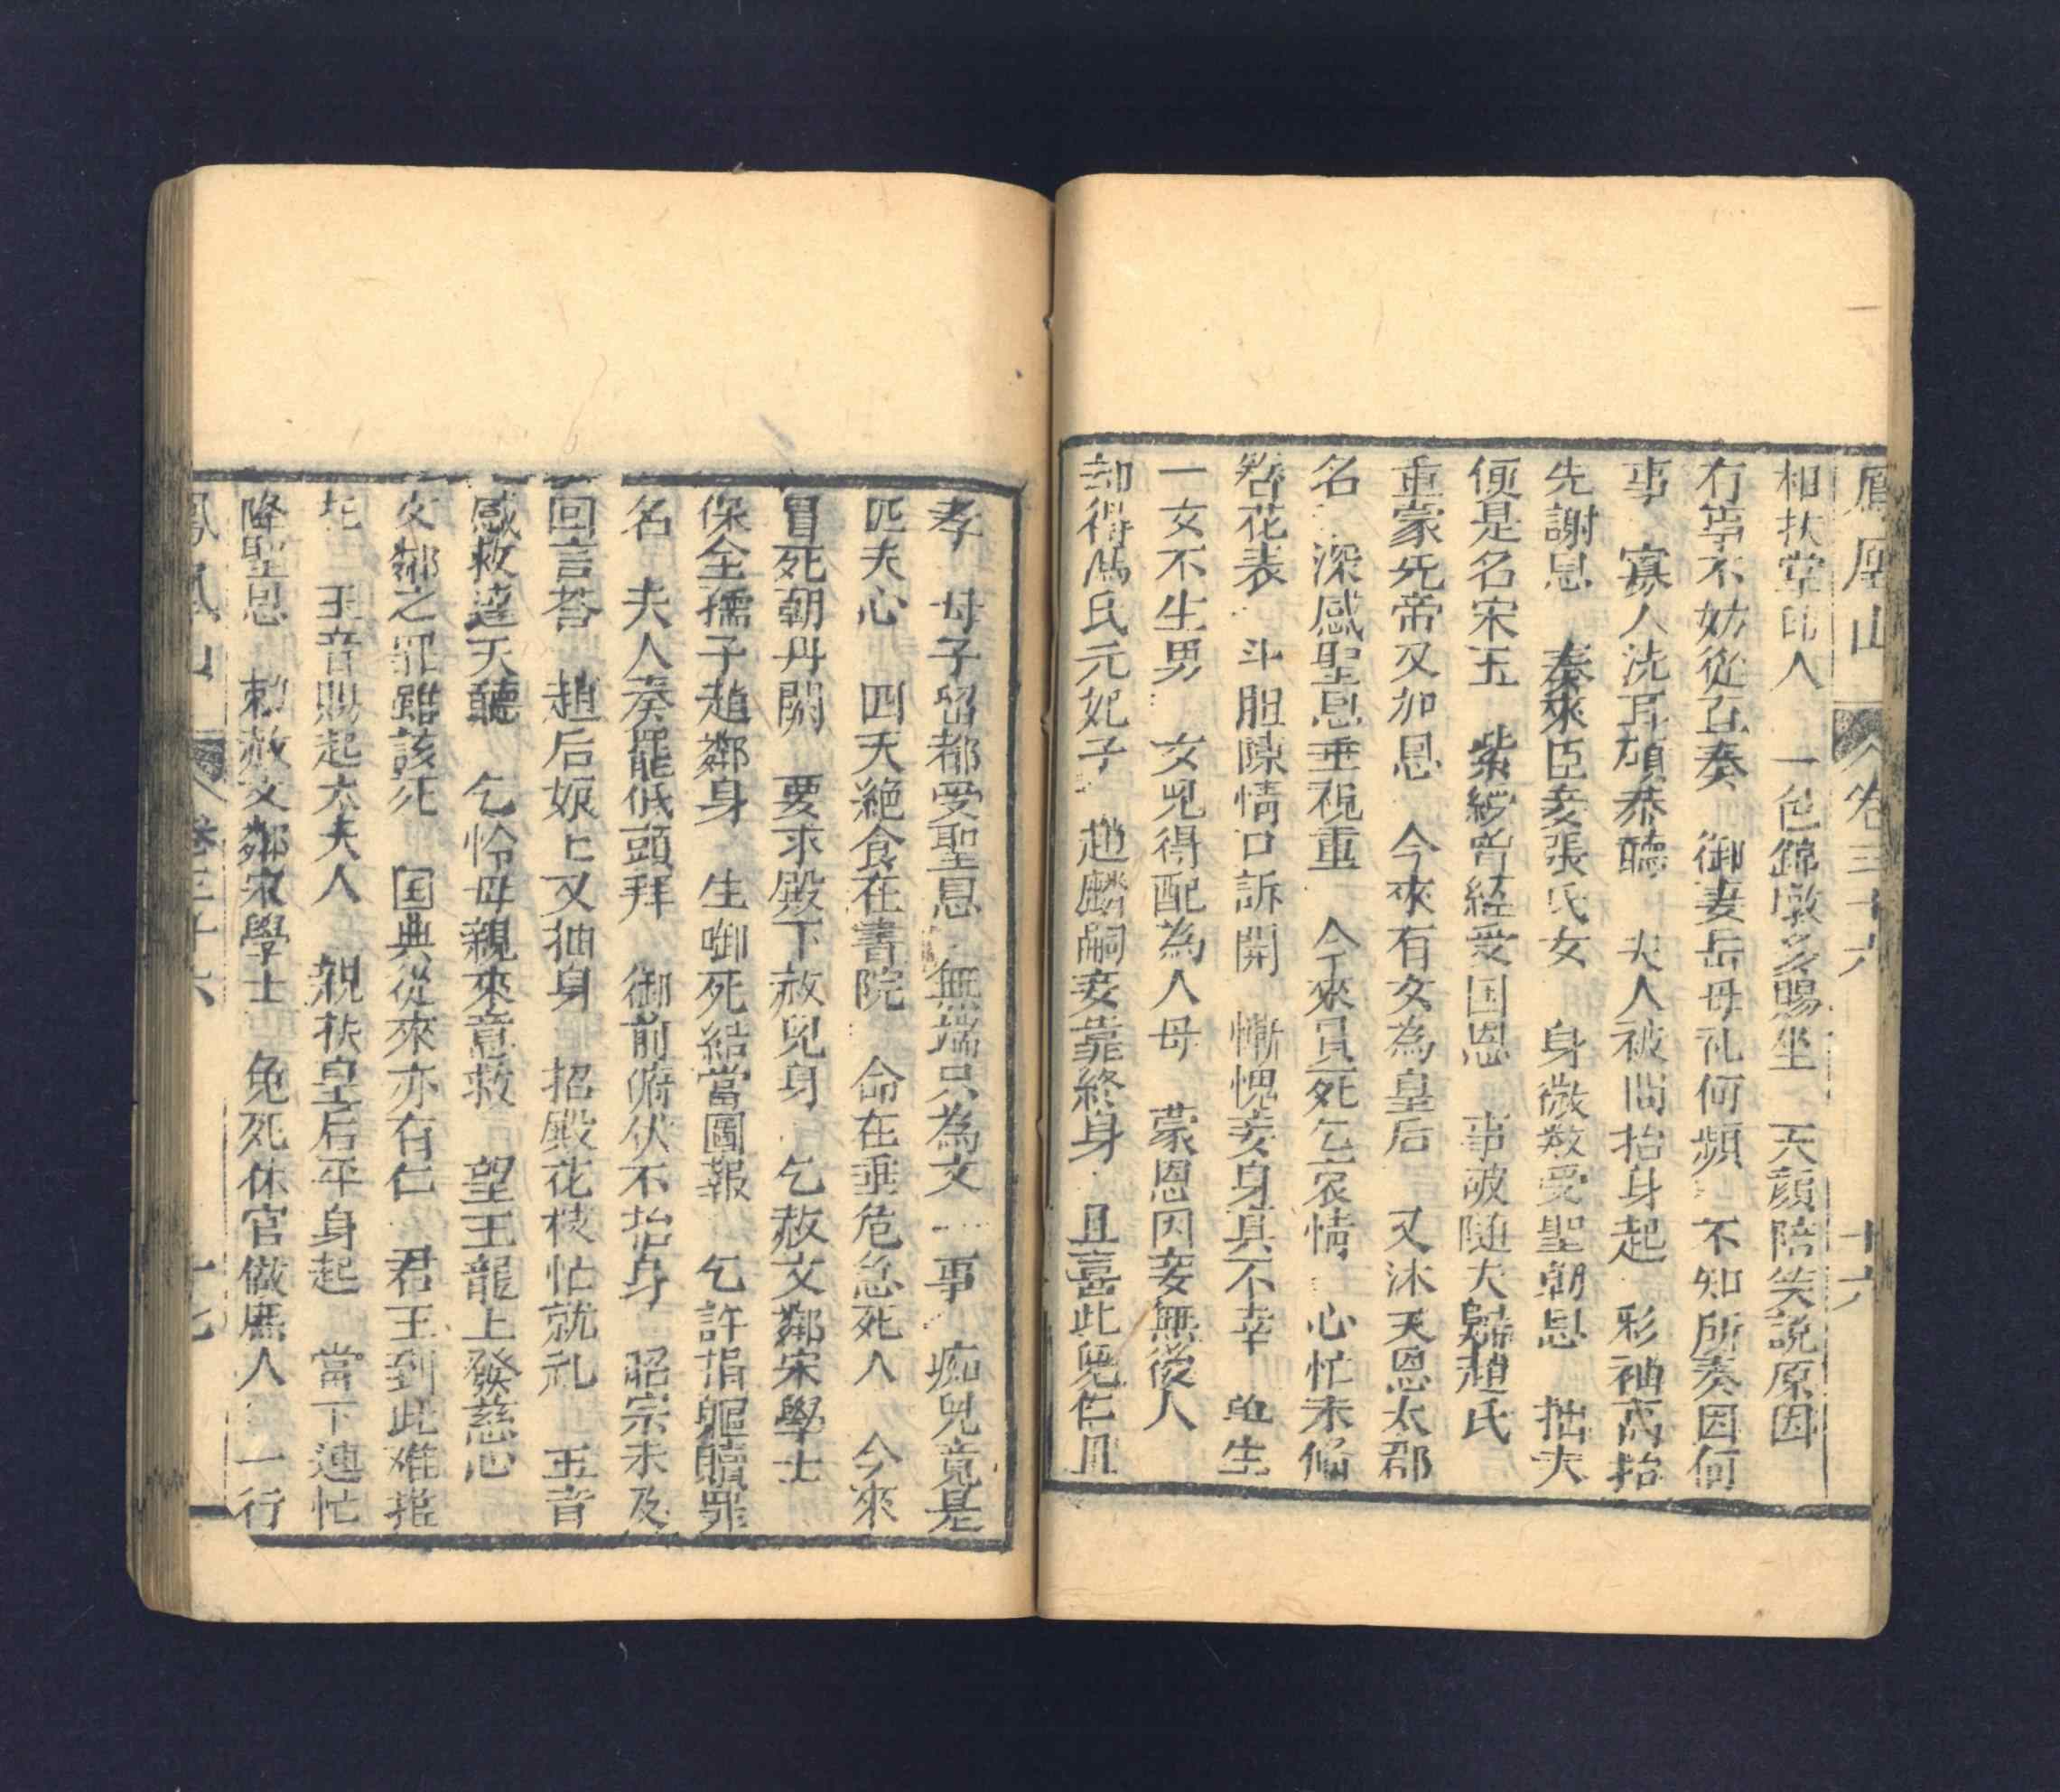 鳳凰山 卷三十六 十六
相扶堂印人 一色錦墩多賜坐 天顔陪笑説原因
有事不妨從直奏 御妻岳母礼何頻 不知所奏因何
事 寡人洗耳頭恭聽 夫人被問抬身起 彩袖高抬
先謝恩 奏來臣妾張氏女 身微叨受聖朝恩 拙夫
便是名宋玉 紫綬曽経受国恩 事破随夫歸趙氏
重蒙先帝又加恩 今來有女為皇后 又沐天恩太郡
名 深感聖恩垂視重 今來冒死乞哀情 心忙未俻
簪花表 斗胆陳情口訴開 慚愧妾身真不幸 單生
一女不生男 女兒得配為人母 蒙恩因妾無後人
却得馮氏元妃子 趙麟嗣妾靠終身 且喜此兒仁且
孝 母子留都受聖恩 無端只為文一事 痴兒竟是
匹夫心 四天絶食在書院 命在垂危急死人 今來
冒死朝丹闕 要求殿下赦兒身 乞赦文鄰宋學士
保全孺子趙鄰身 生啣死結當圖報 乞許捐軀贖罪
名 夫人奏罷低頭拜 御前俯伏不抬身 昭宗未及
回言荅 趙后娘上又抽身 招殿花枝忙就礼 玉音
感救達天聽 乞怜母親來意救 望王龍上發慈心
文鄰之罪雖該死 国典從來亦有仁 君王到此难推
圫 玉音賜起太夫人 親扶皇后平身起 當下連忙
降聖恩 勅赦文鄰宋學士 免死休官做庶人 一行
鳳凰山 卷三十六 十七